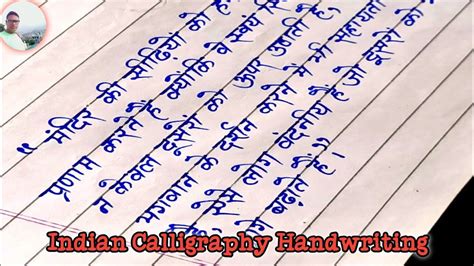 “ मंदिर की सीढ़ियों को
प्रणाम करते है क्योंकि वे स्वयं
न केवल दूसरों को ऊपर उठाती है,
भगवान के दर्शन करने में भी सहायता
ऐसे लोग वंदनीय है जो दूसरों को
बढ़ाते है।”
Indian Calligraphy Handwriting